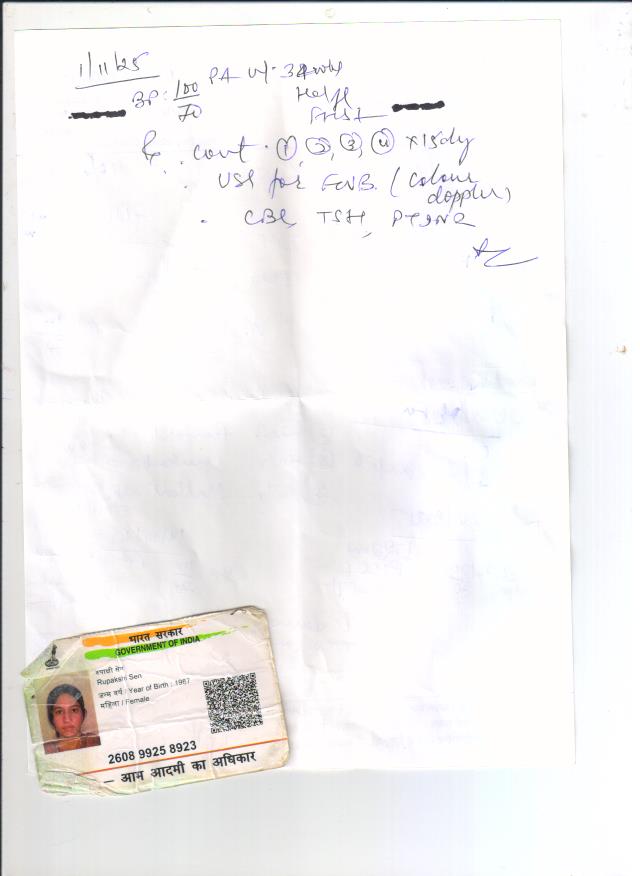 1/11/25
BP: 100/70 PA Ut- 34 wks
Rx . cont . ①, ②, ③, ④ x 15 dy
. USG for FWB. (Colour
doppler)
. CBC, TSH, PT INR
भारत सरकार
GOVERNMENT OF INDIA
रुपाक्षी सेन
Rupakshi Sen
जन्म वर्ष / Year of Birth : 1987
महिला / Female
2608 9925 8923
– आम आदमी का अधिकार